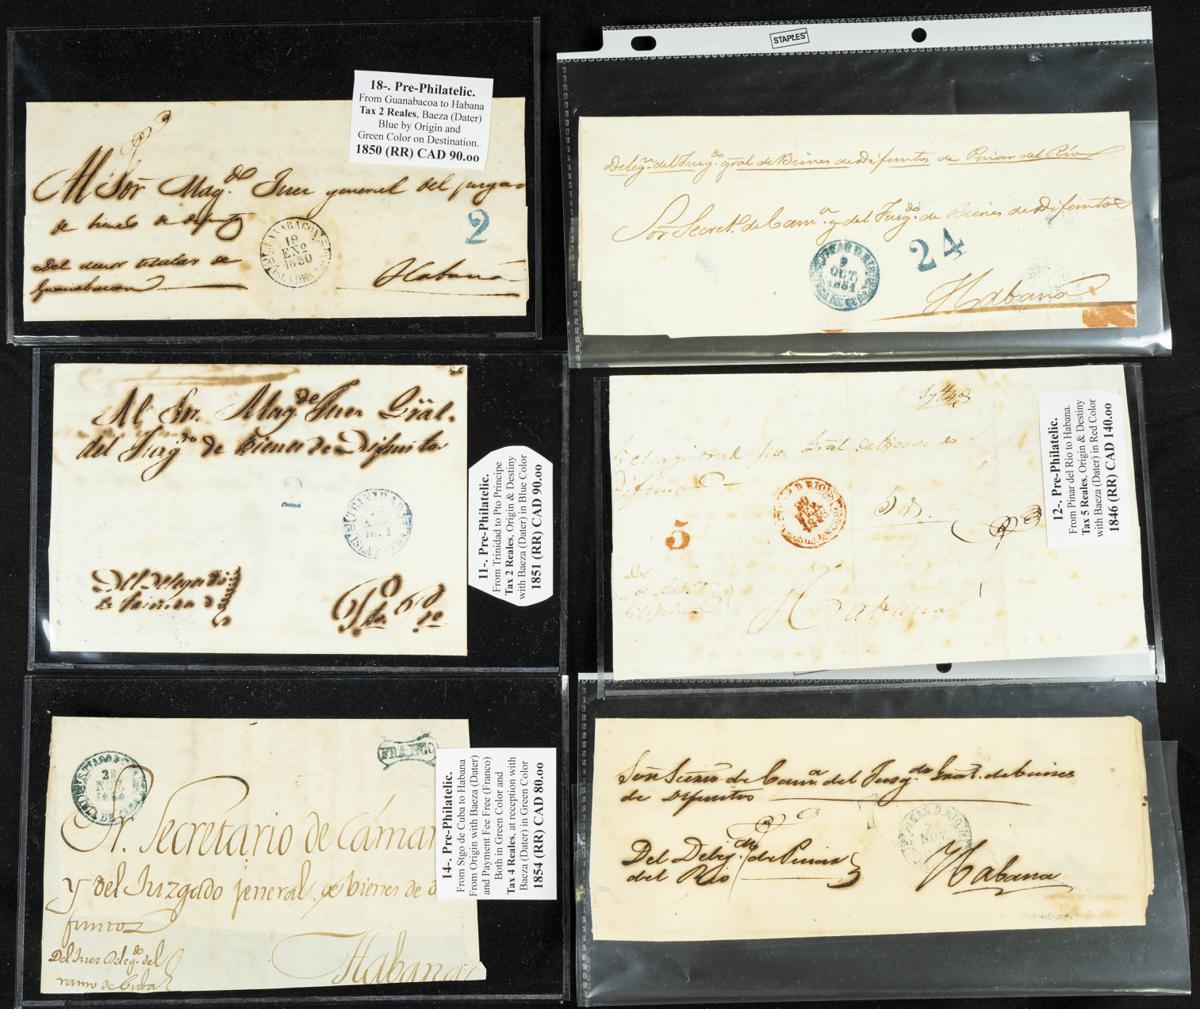 18-. Pre-Philatelic.
From Guanabacoa to Habana
Tax 2 Reales, Baeza (Dater)
Blue by Origin and
Green Color on Destination.
1850 (RR) CAD 90.00
Al Sor. Mag.do Juez general del juzgado
de
Del
Guanabacoa
Habana
GUANABACOA
19
ENº
1850
2
STAPLES
Deleg.n del Juzg.do gral de Bienes de Difuntos de Pinar del Río
Sor. Secret.o de Cam.a y del Juzg.do de Bienes de Difuntos
24
OCT.
1851
Habana
Al Sr. Mag.do Juez Gral.
del Juzg.do de Bienes de Difuntos
2
TRINIDAD
1851
Del delegado
de Trinidad
Pto. Pe.
11-. Pre-Philatelic.
From Trinidad to Pto Principe
Tax 2 Reales, Origin & Destiny
with Baeza (Dater) in Blue Color
1851 (RR) CAD 90.00
5
Habana
12-. Pre-Philatelic.
From Pinar del Rio to Habana.
Tax 5 Reales, Origin & Destiny
with Baeza (Dater) in Red Color
1846 (RR) CAD 140.00
FRANCO
Sr. Secretario de Cámara
y del Juzgado jeneral de bienes de di
funtos
Del Juez Deleg.do del
ramo de Cuba
Habana
14-. Pre-Philatelic.
From Stgo de Cuba to Habana
From Origin with Baeza (Dater)
and Payment Fee Free (Franco)
Both in Green Color and
Tax 4 Reales, at reception with
Baeza (Dater) in Green Color
1854 (RR) CAD 80.00
Sor. Secret.o de Cam.a del Juzg.do Gral. de bienes
de Difuntos
Del Deleg.do de Pinar
del Rio
Habana